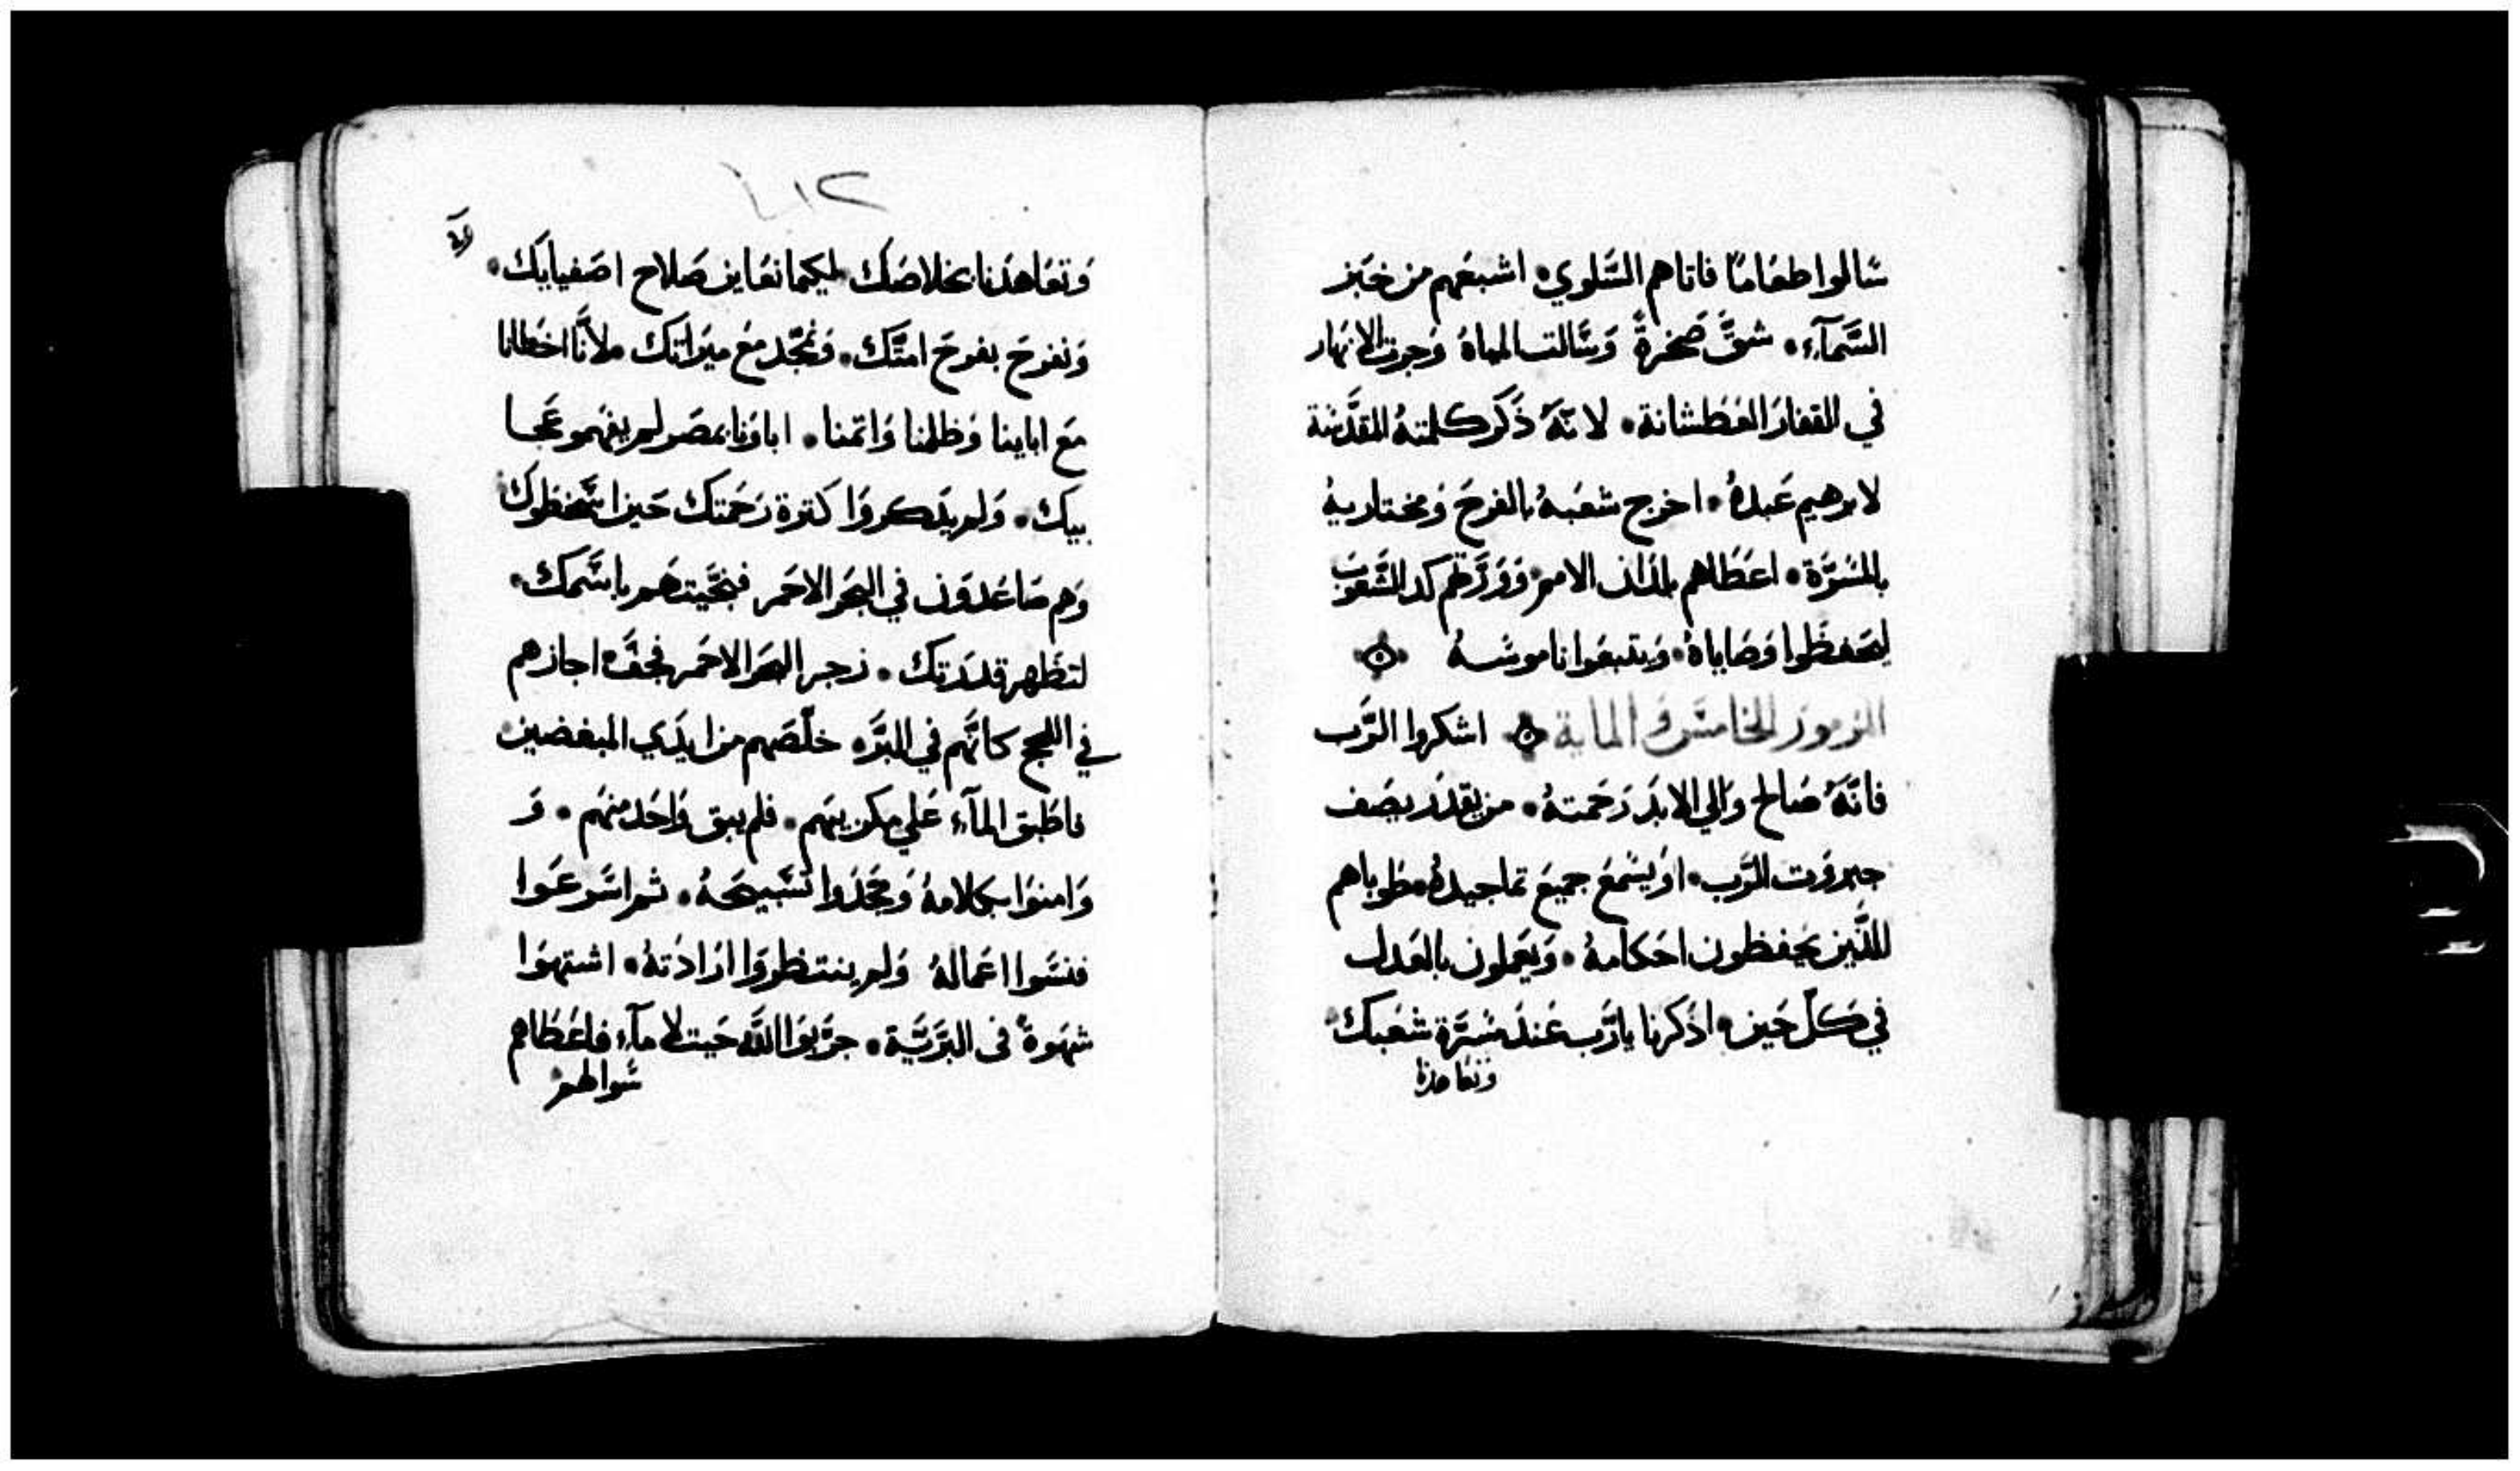 سَالوا طعَامًا فاتاهم السَّلوي • اشبعَهم من خبَز
السَّمآءِ • شقَّ صَخرةً وَسَالت المياهُ وَجرت الانهار
في القفار العَطشانة • لانّهُ ذَكَر كلمتهُ المقدَّسَة
لابرهيم عَبدهُ • اخرج شعَبهُ بالفرحَ وَمختاريهُ
بالمسَرَّة • اعَطَاهم بلدَان الامم وَوَرَّثهم كد الشَّعوَب
ليحَفظَوا وَصَاياهُ • وَيتبعَوا ناموسَهُ
المزمور الخامسَ وَالماية اشكروا الرَّب
فانَّهُ صَالح وَالي الابدَ رَحَمتهُ • من يقدَر يصَف
جبروَت الرَّب • اوَ يسَمعَ جميعَ تماجيدهُ • طوباهم
للذَّين يحَفظون احَكامهُ • وَيعَملون بالعَدل
في كلّ حَين • اذَكرنا يارَّب عَندَ مسَرَّة شعَبك
وَتعَاهدنا
٢١٢
وَتعَاهدَنا بخلاصَك • ليكما نعَاين صَلاح اصَفيايك •
وَنفرحَ بفرحَ امتَّك • وَنمجّد معَ ميرَاثك • لانَّا اخطانا
مَع اباينا وَظلمنا وَاثمنا • اباوَنا بمصَر لم يفهمو عَجا
يبك • وَلم يذَكروَا كثرة رَحَمتك حَين اسَخطوَك
وَهم صَاعَدوَن في البحَر الاحَمر فنجَّيتهَم باسَّمك •
لتظَهر قدَرَتك • زجر البحَر الاحَمر فجفَّ • اجازهم
في اللجج كانَّهم في البرَّ • خلّصَهم من ايدَي المبغضين
فاطَبق المآءِ عَلي مكربيهَم • فلم يبق وَاحَد منهَم • وَ
وَامنوَا بكلامهُ وَمجَّدَوا تسَبيحَهُ • ثم اسَرعَوا
فنسَوا اعَمالهُ وَلم ينتظروَا ارَادَتهُ • اشتهوَا
شهَوةً في البرَيَّة • جرَّبوَا اللَّه حَيت لا مآءِ فاعَطَاهم
سَوالهم